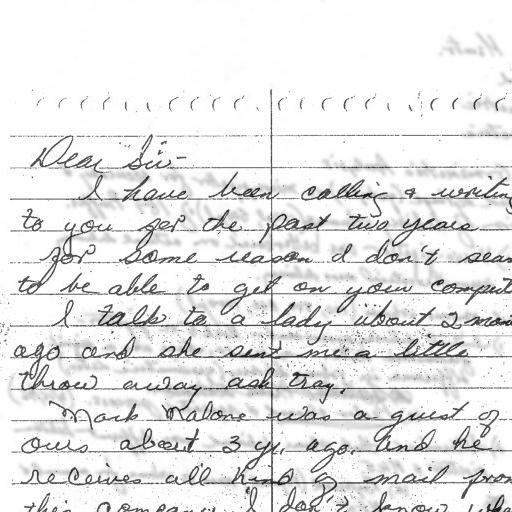 Dear Sir-
I have been calling & writing
to you for the past two years
for some reason I don't seem
to be able to get on your comput
I talk to a lady about 2 mon
ago and she sent me a little
throw away ash tray.
Mark Malone was a guest of
ours about 3 yr. ago. and he
receives all kind of mail from
this company I don't know